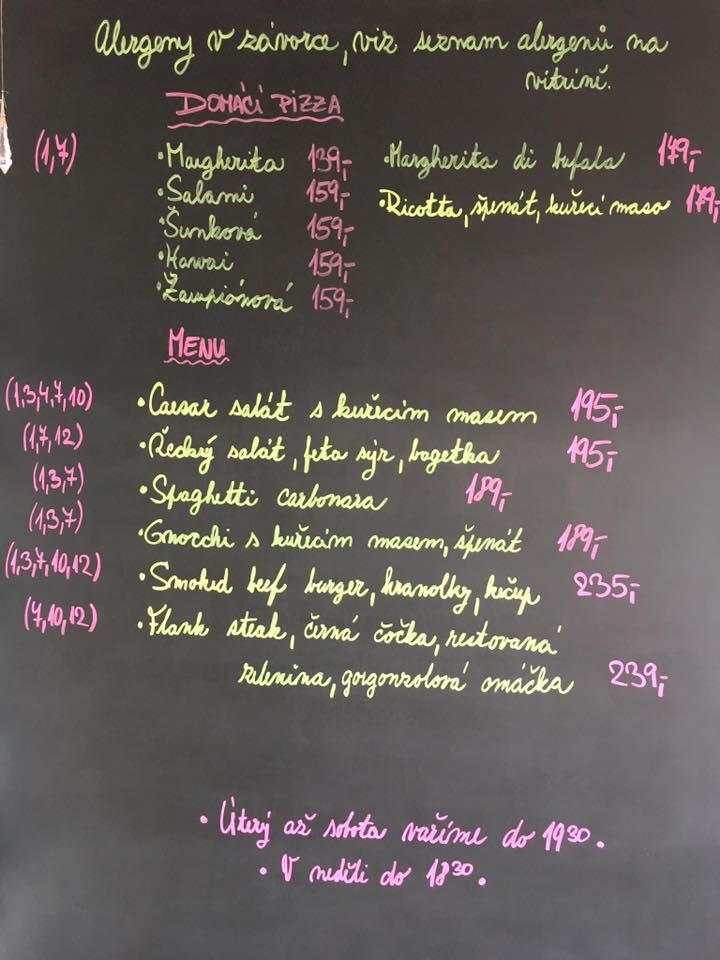 Alergeny v závorce, viz seznam alergenů na
vitríně.
DOMÁCÍ PIZZA
(1,7) •Margherita 139,- •Margherita di bufala 179,-
•Salami 159,- •Ricotta, špenát, kuřecí maso 179,-
•Šunková 159,-
•Hawai 159,-
•Žampiónová 159,-
MENU
(1,3,4,7,10) •Caesar salát s kuřecím masem 195,-
(1,7,12) •Řecký salát, feta sýr, bagetka 195,-
(1,3,7) •Spaghetti carbonara 189,-
(1,3,7) •Gnocchi s kuřecím masem, špenát 189,-
(1,3,7,10,12) •Smoked beef burger, hranolky, kečup 235,-
(7,10,12) •Flank steak, černá čočka, restovaná
zelenina, gorgonzolová omáčka 239,-
• Úterý až sobota vaříme do 19³⁰.
• V neděli do 18³⁰.